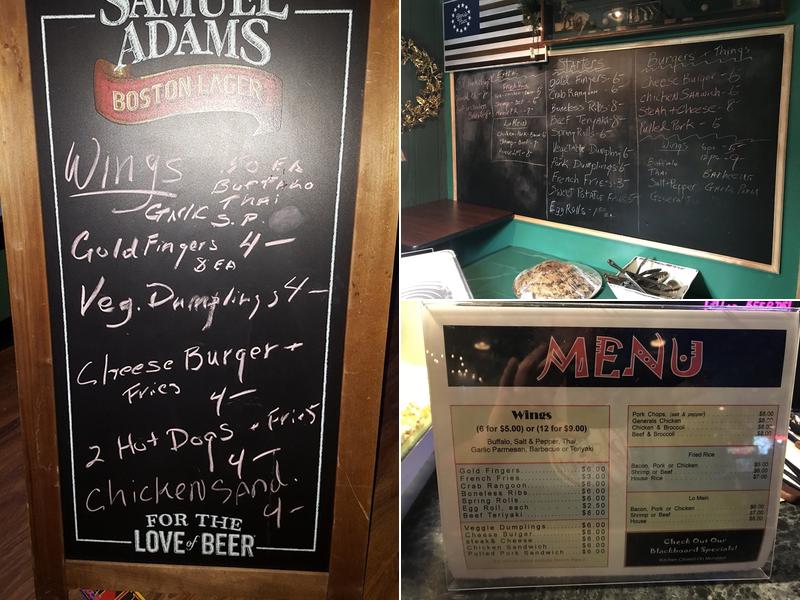 SAMUEL
ADAMS
BOSTON LAGER
Wings .50 EA
Buffalo
Thai
Garlic S.P.
Gold Fingers 4-
8 EA
Veg. Dumplings 4-
Cheese Burger +
Fries
4-
2 Hot Dogs + Fries
4-
Chicken Sand.
4-
FOR THE
LOVE of BEER
Starters
Gold Fingers - 6-
Crab Rangoon - 6
Boneless Ribs. 8-
Beef Teriyaki - 8
Spring Rolls - 6-
Vegetable Dumplings 6
Pork Dumplings 6
French Fries - 3.5
Sweet Potato Fries 5
Egg Rolls -
Burgers + Things
Cheese Burger - 6
Chicken Sandwich - 6
Steak + Cheese - 8
Pulled Pork - 6
Wings 6pc - 5-
12pc - 9-
Buffalo
Thai Barbecue
Salt+Pepper Garlic Parm
General
Fried Rice
Lo Mein
MENU
Wings
(6 for $5.00) or (12 for $9.00)
Buffalo, Salt & Pepper, Thai,
Garlic Parmesan, Barbecue or Teriyaki
Gold Fingers $6.00
French Fries $3.00
Crab Rangoon $6.00
Boneless Ribs $6.00
Spring Rolls $6.00
Egg Roll, each $2.50
Beef Teriyaki $8.00
Veggie Dumplings $6.00
Cheese Burger $6.00
steak& Cheese $8.00
Chicken Sandwich $6.00
Pulled Pork Sandwich $6.00
Pork Chops, (salt & pepper) $8.00
Generals Chicken $8.00
Chicken & Broccoli $8.00
Beef & Broccoli $8.00
Fried Rice
Bacon, Pork or Chicken
Shrimp or Beef
House Rice
Lo Main
Bacon, Pork or Chicken
Shrimp or Beef
House
Check Out Our
Blackboard Specials!
Kitchen Closed On Mondays